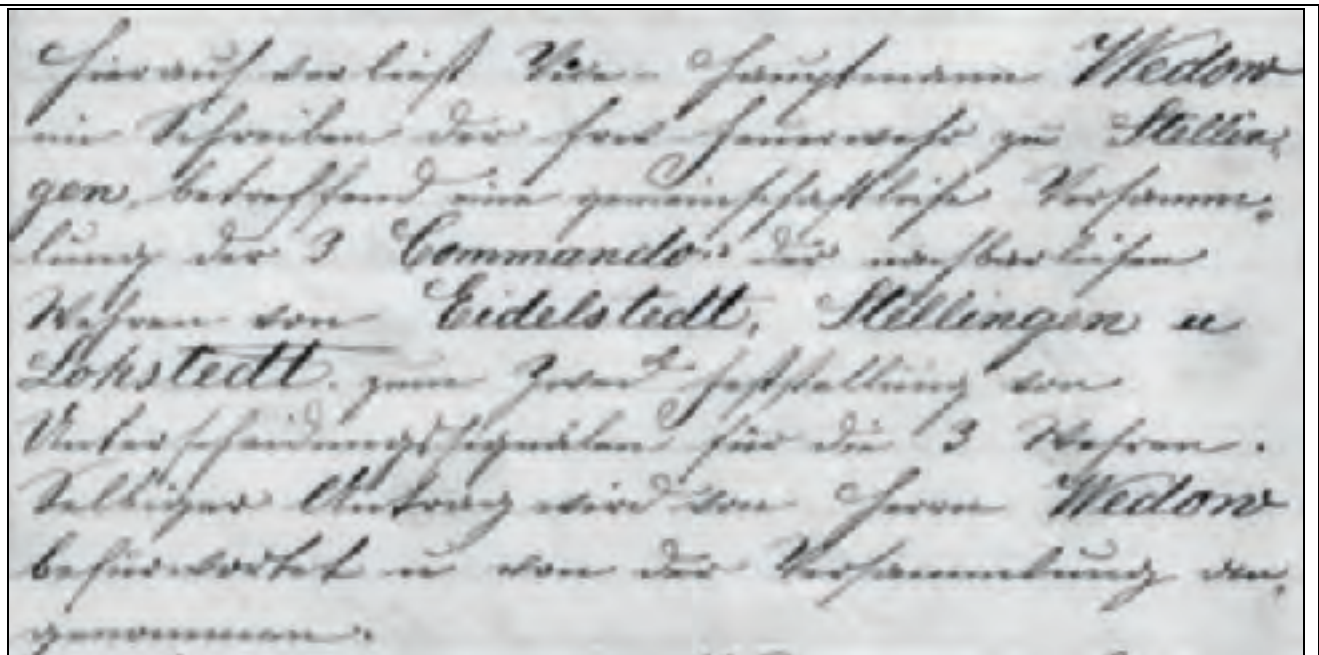 Hierauf verließt Vice-Hauptmann Wedow
ein Schreiben der frei Feuerwehr zu Stellin,
gen, betreffend eine gemeinschaftliche Versamm,
lung der 3 Commando's der nachbarlichen
Wehren von Eidelstedt, Stellingen u
Lohstedt. zum Zweck Feststellung von
Unterscheidungssignalen für die 3 Wehren.
Selbiger Antrag wird von Herrn Wedow
befürwortet u von der Versammlung an,
genommen.